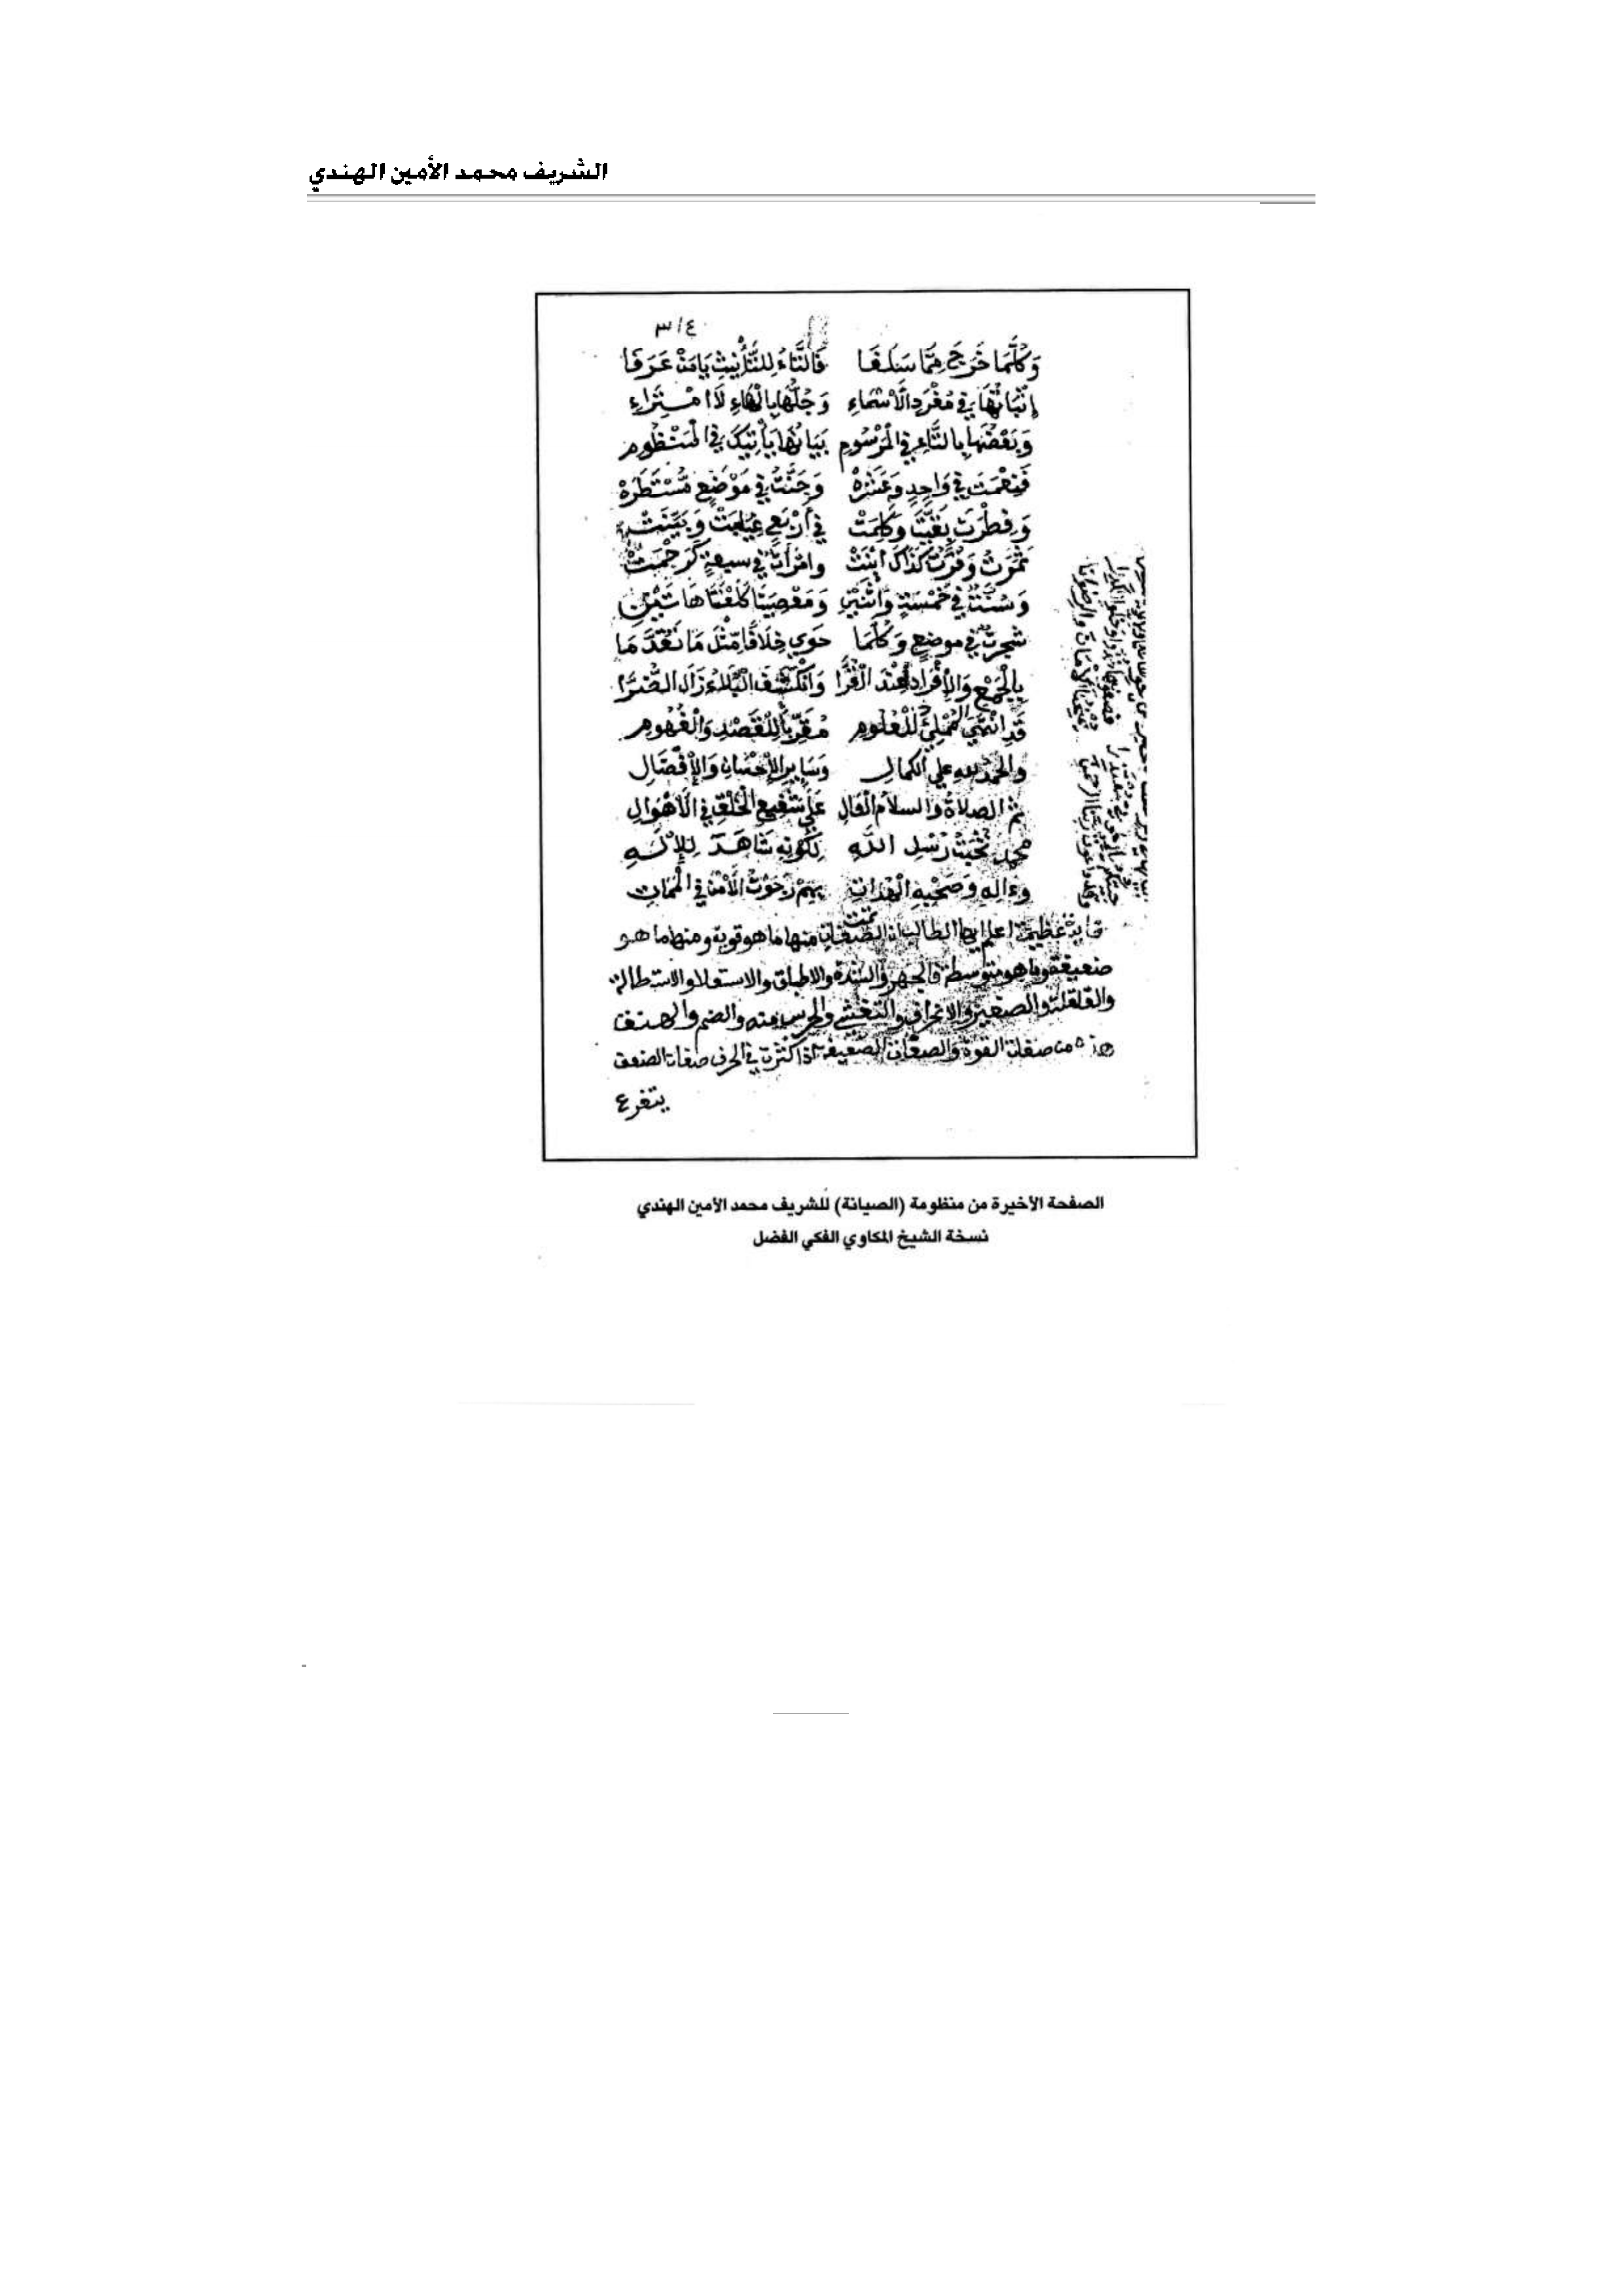 الشريف محمد الأمين الهندي
٣/٤
وَكُلَّمَا خَرَجَ مِمَّا سَلَفَا فَالتَّاءُ لِلتَّأْنِيثِ يَا مَنْ عَرَفَا
إِثْبَاتُهَا فِي مُفْرَدِ الْأَسْمَاءِ وَجُلُّهَا بِالْهَاءِ لَا امْتِرَاءِ
وَبَعْضُهَا بِالتَّاءِ فِي الْمَرْسُومِ بَيَانُهَا يَأْتِيكَ فِي الْمَنْظُومِ
فَنِعْمَتَ فِي وَاحِدٍ وَعَشْرَهْ وَجَنَّتُ فِي مَوْضِعٍ مُسْتَطَرَهْ
وَفِطْرَتَ بَقِيَّتَ وَكَلِمَتْ فِي أَرْبَعٍ غَيَابَتْ وَبَيِّنَتْ
ثَمَرَتُ وَقُرَّتُ كَذَاكَ ابْنَتْ وامْرَأَتُ فِي سبعةٍ كَرَحْمَتْ
وَسُنَّتُ فِي خَمْسَةٍ وَاثْنَيْنِ وَمَعْصِيَتَ كَلَعْنَتَ هَا تَيْنِ
شجرتُ في موضعٍ وَكُلَّمَا حَوَى خِلَافًا مِّثْلَ مَا تَقَدَّمَا
بِالْجَمْعِ وَالْإِفْرَادِ عِنْدَ الْقُرَّا وَانْكَشَفَ الْبَلَاءُ زَالَ الضُّرَّا
قَدِ انْتَهَى الْمُمْلِي لِلْعُلُومِ مُقَرِّبًا لِلْقَصْدِ وَالْفُهُومِ
والحمد لله على الكمالِ وَسَايِرِ الْإِحْسَانِ وَالْإِفْضَالِ
ثم الصلاة والسلام العَالِ عَلَى شَفِيعِ الْخَلْقِ فِي الْأَهْوَالِ
محمد نُخْبَتْ رُسْلِ اللَّهِ لِكَوْنِهِ شَاهَدَ لِلْإِلَهِ
وءالِهِ وَصَحْبِهِ الْهُدَاتِ بِهِمْ رَجَوْتُ الْأَمْنَ فِي الْمَمَاتِ
تمت
فايدة عظيمة اعلم ايها الطالب ان الصفات منها ما هو قوية ومنها ما هو
ضعيفة وما هو متوسطة فالجهر والشدة والاطباق والاستعلا والاستطالة
والقلقلة والصفير والانحراف والتفشي والضم والهتف
هذه من صفات القوة والصفات الضعيفة اذا كثرت في الحرف صفات الضعف
يتفرع
الصفحة الأخيرة من منظومة (الصيانة) للشريف محمد الأمين الهندي
نسخة الشيخ المكاوي الفكي الفضل